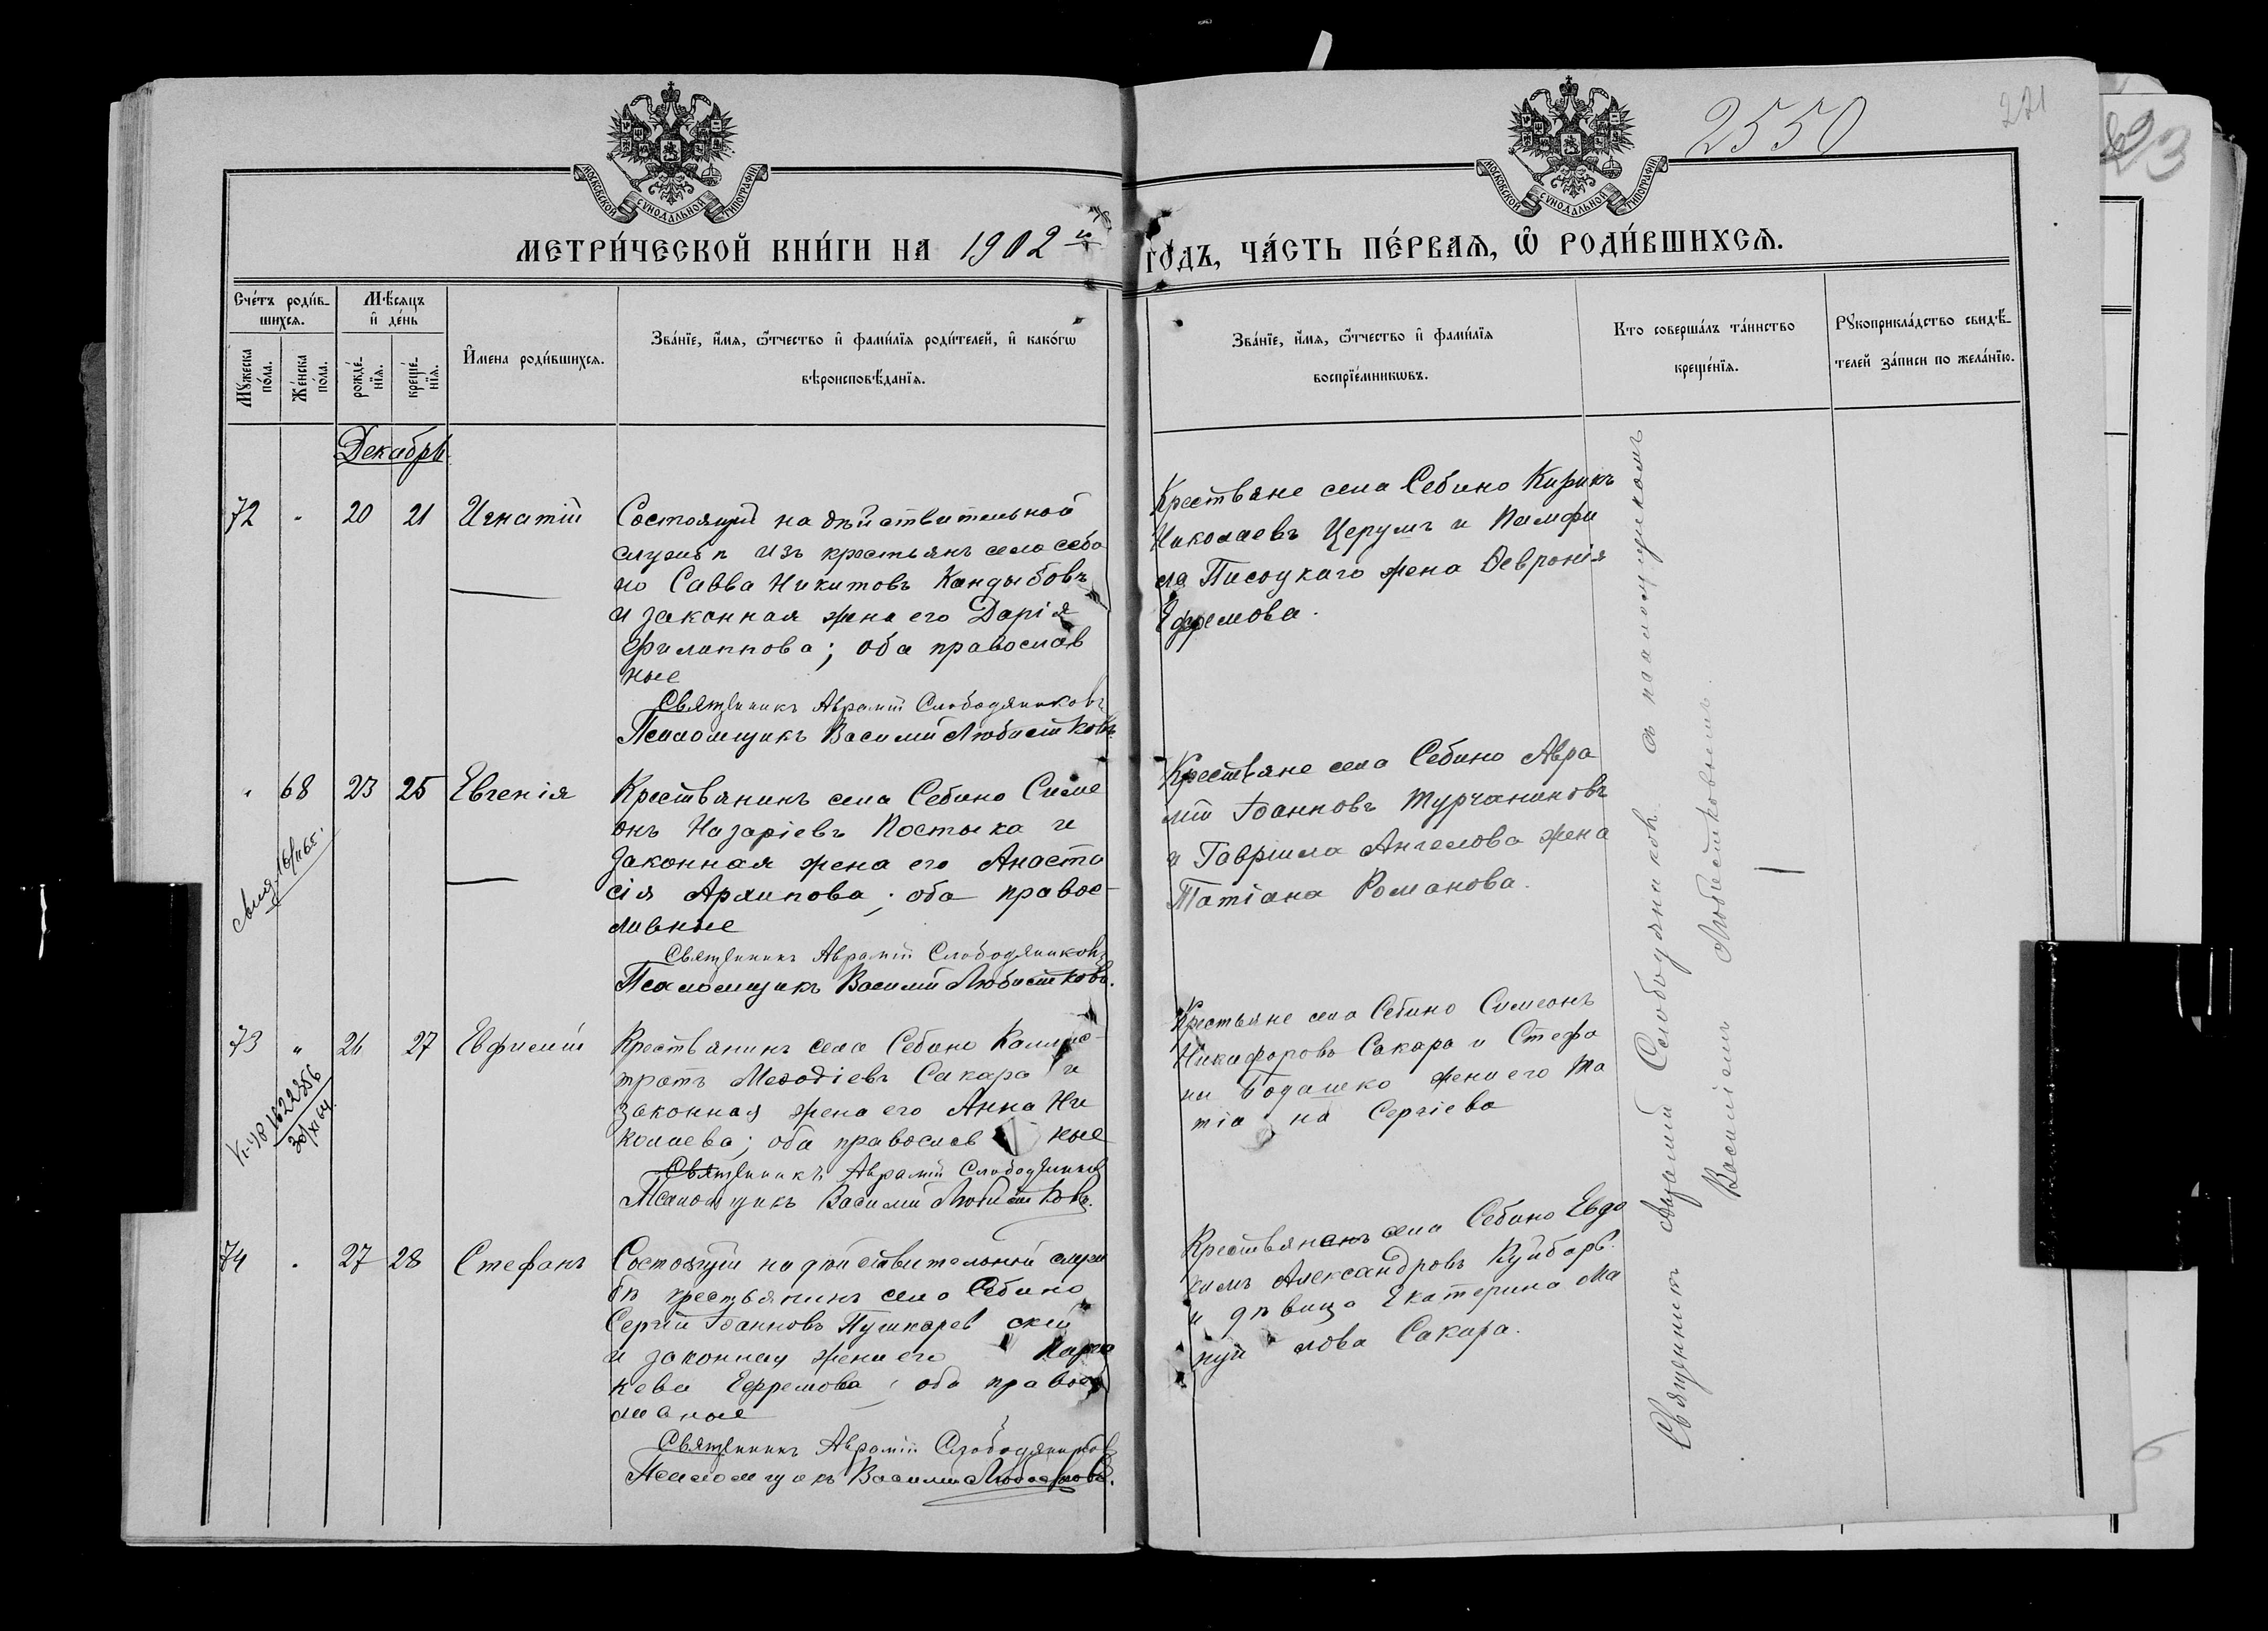 2550
221
МОСКОВСКОЙ СѴНОДАЛЬНОЙ ТИПОГРАФІИ
МОСКОВСКОЙ СѴНОДАЛЬНОЙ ТИПОГРАФІИ
МЕТРИ́ЧЕСКОЙ КНИ́ГИ НА 1902 й
ГО́ДЪ, ЧА́СТЬ ПЕ́РВАЯ, Ѡ РОДИ́ВШИХСЯ.
Сче́тъ роди́в-
шихся.
Мѣ́сяцъ
и де́нь
Мꙋ́жеска
по́ла.
Же́нска
по́ла.
рожде́-
нїя.
креще́-
нїя.
И́мена роди́вшихся.
Зва́нїе, и́мя, ѻ́тчество и фами́лїя роди́телей, и како́гѡ
вѣроисповѣ́данїя.
Зва́нїе, и́мя, ѻ́тчество и фами́лїя
воспрїе́мникѡвъ.
Кто соверша́лъ та́инство
креще́нїя.
Рꙋкоприкла́дство свидѣ́-
телей за́писи по жела́нїю.
Декабрь
72 " 20 21 Игнатій
Состоящій на дѣйствительной
службѣ изъ крестьянъ села Себи
но Савва Никитовъ Кандыбовъ
и законная жена его Дарія
Филиппова; оба православ
ные
Священникъ Аврамій Слободяниковъ
Псаломщикъ Василій Любистковъ
Крестьяне села Себино Кирикъ
Николаевъ Церулъ и Памфи
ла Писоцкаго жена Ѳевронія
Ефремова.
" 68 23 25 Евгенія
Крестьянинъ села Себино Симе
онъ Назаріевъ Постыка и
законная жена его Анаста
сія Архипова; оба правос-
лавные
Священникъ Аврамій Слободяниковъ
Псаломщикъ Василій Любистковъ.
Крестьяне села Себино Авра
мій Іоанновъ Турчаниновъ
и Гавріила Ангелова жена
Татіана Романова.
73 " 26 27 Евфимій
Крестьянинъ села Себино Каллис-
тратъ Меѳодіевъ Сакара и
законная жена его Анна Ни
колаева; оба православ ные
Священникъ Аврамій Слободяниковъ
Псаломщикъ Василій Любистковъ.
Крестьяне села Себино Симеонъ
Никифоровъ Сакара и Стефа
на Бодашко жена его Та
тіа на Сергіева
74 " 27 28 Стефанъ
Состоящій на дѣйствительной служ
бѣ крестьянинъ села Себино
Сергій Іоанновъ Пушкарев скій
и законная жена его Парас
кева Ефремова; оба правос
лавные
Священникъ Аврамій Слободяниковъ
Псаломщикъ Василій Любистковъ.
Крестьянинъ села Себино Евдо
кимъ Александровъ Куйбарь
и дѣвица Екатерина Ма
нуи лова Сакара.
Священникъ Аврамій Слободяниковъ съ псаломщикомъ
Василіемъ Любистковымъ.